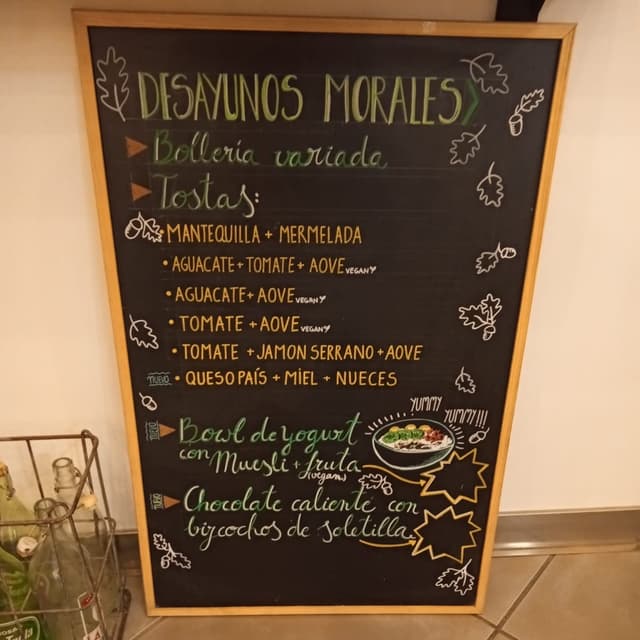 DESAYUNOS MORALES
Bollería variada
Tostas:
• MANTEQUILLA + MERMELADA
• AGUACATE + TOMATE + AOVE VEGAN
• AGUACATE + AOVE VEGAN
• TOMATE + AOVE VEGAN
• TOMATE + JAMON SERRANO + AOVE
NUEVO • QUESO PAÍS + MIEL + NUECES
YUMMY YUMMY!!!
NUEVO Bowl de yogurt
con Muesli + fruta
(vegan)
NUEVO Chocolate caliente con
bizcochos de soletilla.